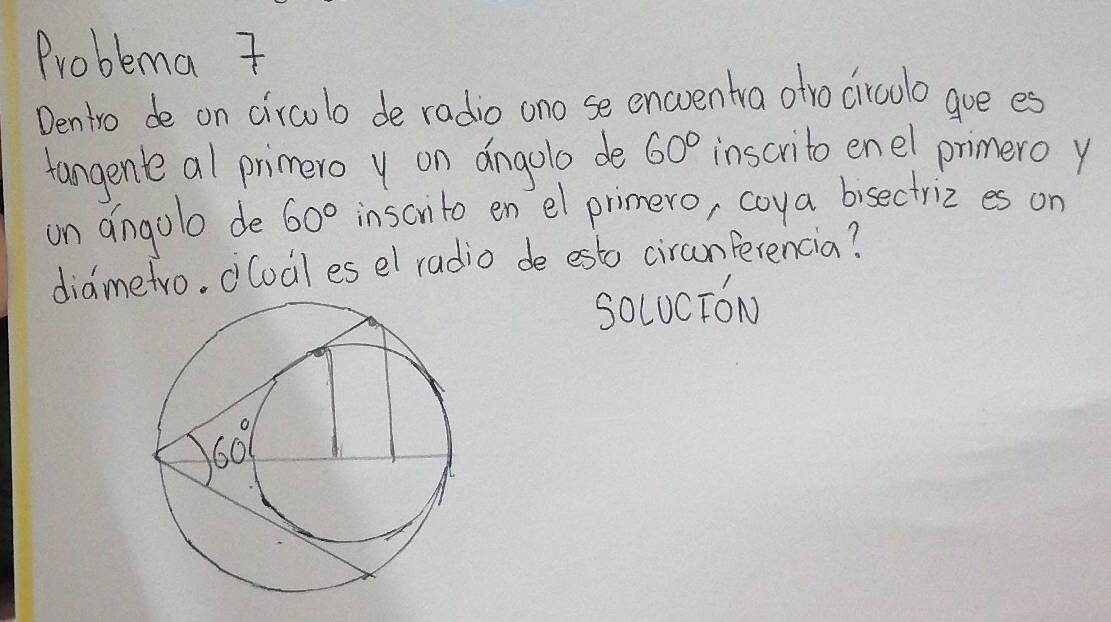 Problema 7
Dentro de un círculo de radio uno se encuentra otro círculo que es
tangente al primero y un ángulo de 60° inscrito en el primero y
un ángulo de 60° inscrito en el primero, cuya bisectriz es un
diámetro. ¿Cuál es el radio de esta circunferencia?
SOLUCIÓN
60°